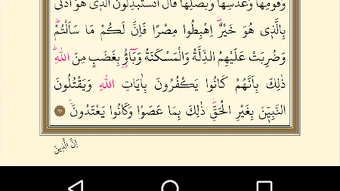 وَفُومِهَا وَعَدَسِهَا وَبَصَلِهَا قَالَ اَتَسْتَبْدِلُونَ الَّذِى هُوَ اَدْنٰى
بِالَّذِى هُوَ خَيْرٌ اِهْبِطُوا مِصْرًا فَاِنَّ لَكُمْ مَا سَاَلْتُمْ
وَضُرِبَتْ عَلَيْهِمُ الذِّلَّةُ وَالْمَسْكَنَةُ وَبَٓاؤُ بِغَضَبٍ مِنَ اللهِ
ذٰلِكَ بِاَنَّهُمْ كَانُوا يَكْفُرُونَ بِاٰيَاتِ اللهِ وَيَقْتُلُونَ
النَّبِيّٖنَ بِغَيْرِ الْحَقِّ ذٰلِكَ بِمَا عَصَوْا وَكَانُوا يَعْتَدُونَ
اِنَّ الَّذِينَ